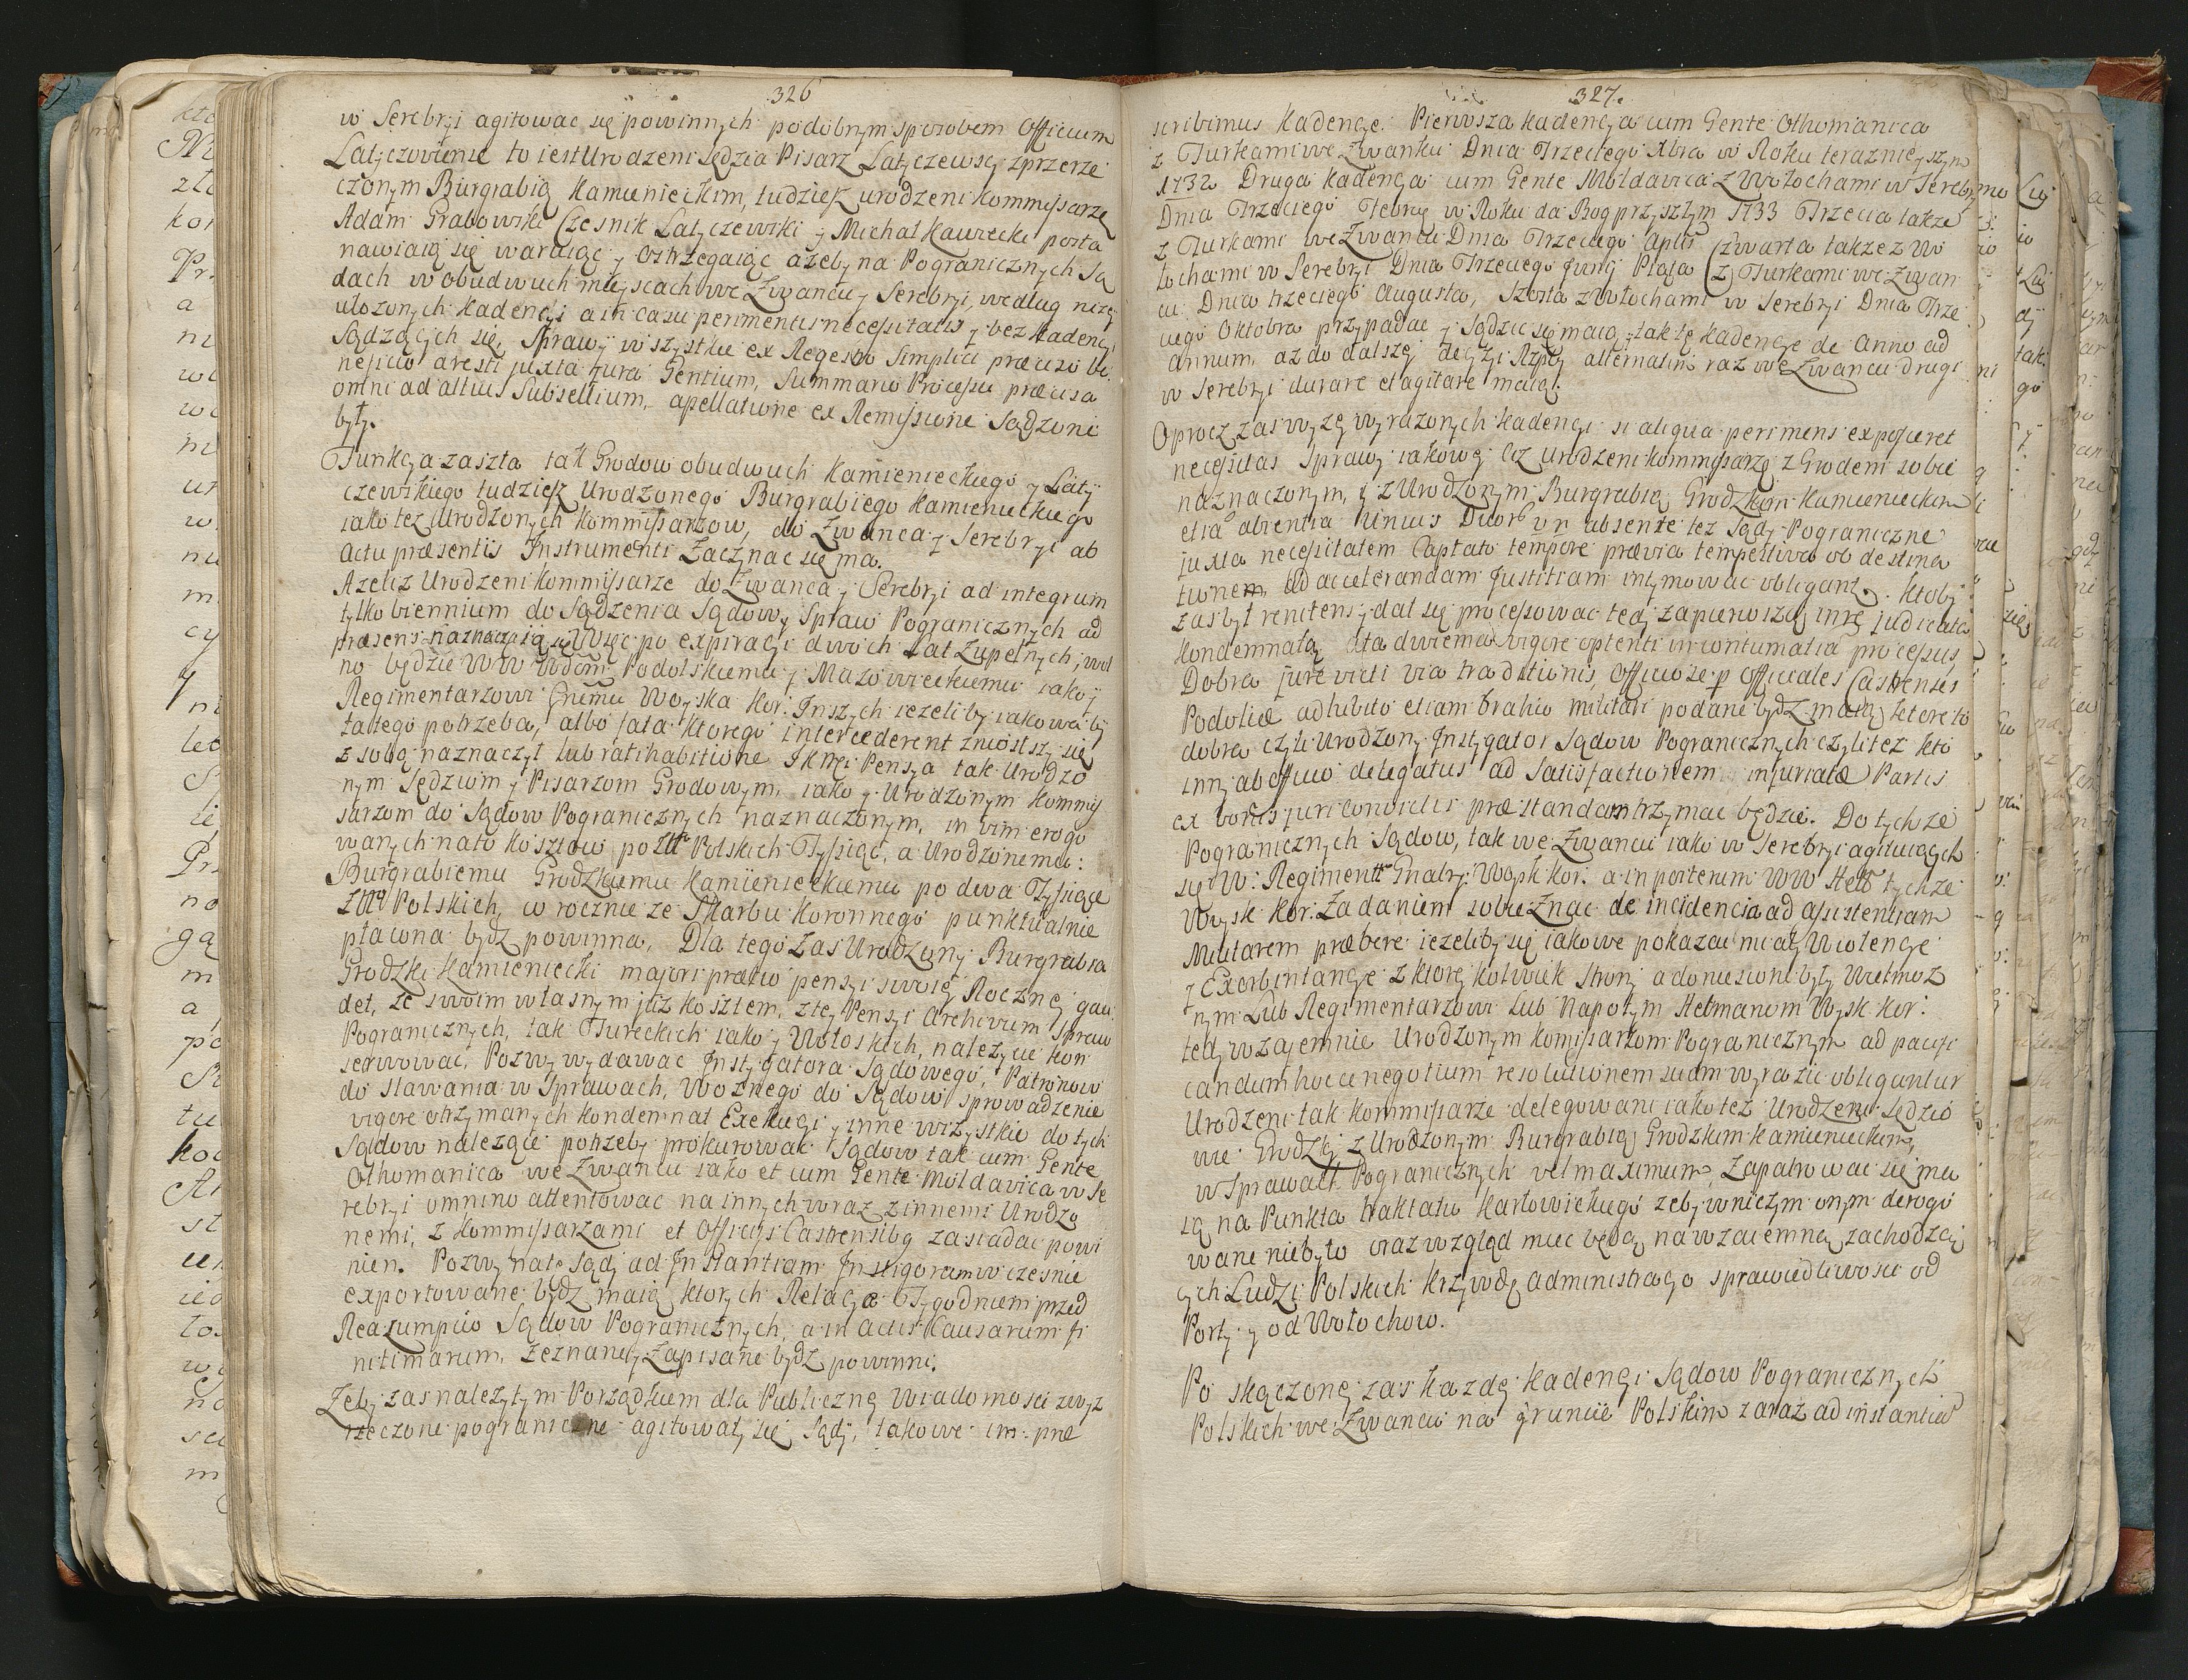 326
w Serebryi agitowac się powinnych podobnym sposobem Officium
Latyczoviense to iest Urodzeni Sędzia Pisarz Latyczewscy z przerze
czonym Burgrabią Kamienieckim, tudziesz urodzeni Kommissarze
Adam Grabowski Czesnik Latyczewski y Michał Kawecki posta
nawiaią się waruiąc y ostrzegaiąc azeby na Pogranicznych Są
dach w obudwuch mieyscach we Zwancu y Serebryi, według nizey
ułozonych Kadencyi a in casu perimentis necessitatis y bez Kadency
Sądzących się, Sprawy wszystkie ex Regestro Simplici præciso be
neficio aresti juxta jura Gentium, Summario Processu præcisa
omni ad altius Subsellium, apellatione ex Remissione Sądzone
były.
Funkcya zaszta tak Grodow obudwuch Kamienieckiego y Laty
czewskiego tudziesz Urodzonego Burgrabiego Kamienieckiego
iako tez Urodzonych Kommissarzow, do Zwanca y Serebryi ab
actu præsentis Instrumenti zacznac się ma.
A zeli z Urodzeni Kommissarze do Zwanca y Serebryi ad integrum
tylko biennium do Sądzenia Sądow y Spraw Pogranicznych ad
præsens naznaczaią się Więc po expiracyi dwóch Lat Zupełnych, wol
no będzie WW Wdom Podolskiemu y Mazowieckiemu iako y
Regimentarzowi Gnemu Woyska Kor: Inszych iezeliby iakowa by
ła tego potrzeba, albo fata ktorego intercederent zniosłszy się
z sobą naznaczyc lub ratihabitione Ikney Pensya tak Urodzo
nym Sędziom y Pisarzom Grodowym, iako y Urodzonym Kommis
sarzom do Sądow Pogranicznych naznaczonym, in vim erogo
wanych na to kosztow po Złł Polskich Tysiąc, a Urodzonemu:
Burgrabiemu Grodzkiemu Kamienieckiemu po dwa Tysiące
Złł Polskich, w rocznie ze Skarbu Koronnego punktualnie
płacona bydz powinna. Dla tego zas Urodzony Burgrabia
Grodzki Kamieniecki majori præ pensyi swoiey Roczney gau
det, ze swoim własnym juz kosztem, z tey Pensyi Archivum Spraw
Pogranicznych, tak Tureckich iako y Wołoskich, nalezycie kon
serwowac, Pozwy wydawac Instygatora Sądowego, Patronow
do stawania w Sprawach, Woznego do Sądow sprowadzenie
vigore otrzymanych Kondemnat Exekucyi y inne wszystkie do tych
Sądow nalezące potrzeby prokurowac Sądow tak cum Gente
Othomanica we Zwancu iako et cum Gente Moldavica w Se
rebryi omnino attentowac na innych wraz z innemi Urodzo
nemi, z Kommissarzami et Officiis Castrensibq zasiadac powi
nien. Pozwy na te Sądy ad Instantiam Instigorum wczesnie
exportowane bydz maią, ktorych Relacya Tygodniem przed
Reazumpcio Sądow Pogranicznych, a in Actis Causarum fi
nitimarum, zeznane y zapisane bydz powinni.
Zeby zas nalezytym Porządkiem dla Publiczney Wiadomosci zwyz
rzeczone pograniczne agitowały się Sądy, takowe im præ
327.
scribimus Kadencye. Pierwsza Kadencya cum Gente Othomanica
z Turkami we Zwanku Dnia Trzeciego Xbra w Roku teraznieyszym
1732 Druga Kadencya cum Gente Moldavica z Wołochami w Serebr
Dnia Trzeciego Febry w Roku da Bog przyszłym 1733 Trzecia takze
z Turkami we Zwancu Dnia Trzeciego Aplis Czwarta takze z Wo
łochami w Serebryi Dnia Trzeciego Junij Piąta z Turkami we Zwan
cu Dnia trzeciego Augusta, Szosta z Wołochami w Serebryi Dnia Trze
ciego Oktobra przypadac y Sądzic się maią, tak te Kadencye de Anno ad
Annum az do dalszey decyzyi Rzptey alternatim raz we Zwancu drugi
w Serebryi durare et agitare maią.
Oprocz zas wyzey wyrazonych Kadencyi si aliqua perimens exposceret
necessitas Sprawy iakowey Ciz Urodzeni Kommissarze z Grodem sobie
naznaczonym, y z Urodzonym Burgrabią Grodzkim Kamienieckim
etia absentia Unius Duorb vn absente tez Sądy Pograniczne
juxta necessitatem Captato tempore prævia tempestiva ob destina
tionem ad accelerandam Justitiam intymowac obligant. Ktoby
zas był renitens y dał się processowac tedy za pierwszą inrę judicata
Kondemnatą ata dwiema vigore optenti in contumatia processus
Dobra jure victi via traditionis, officiose p Officiales Castrenses
Podoliæ adhibito etiam brahio militari podane bydz maią ktore to
dobra czyli Urodzony Instygator Sądow Pogranicznych czyli tez kto
inny ab officio delegatus ad Satisfactionem injuriatæ Partis
ex bonis juri convictis præstandam trzymac będzie. Do tychze
Pogranicznych Sądow, tak we Zwancu iako w Serebryi agituiących
się W: Regimentt Gnalny Woysk Kor: a in posterum WW Hett tychze
Woysk Kor: Za daniem sobie znac de incidencia ad assistentiam
Militarem præbere iezeliby się iakowe pokazac miały Violencye
y Exorbitancye z ktorey kolwiek Strony a doniesione były Wielmoz
nym Lub Regimentarzowi Lub Napotym Hetmanom Woysk Kor:
tedy wzajemnie Urodzonym Komissarzom Pogranicznym ad pacifi
candum hocce negotium resolutionem suam wyrazic obligantur
Urodzeni tak Kommissarze delegowani iako tez Urodzeni Sędzio
wie Grodzcy z Urodzonym Burgrabią Grodzkim Kamienieckim,
w Sprawach Pogranicznych vel maximum, Zapatrowac się ma
ią na Punkta traktatu Karłowickiego zeby w niczym onym derogo
wane nie było oraz wzgląd miec będą na wzaiemną zachodzcą
cych Ludzi Polskich Krzywdę administracyą sprawiedliwosci od
Porty y od Wołochow.
Po skączoney zas kazdey Kadencyi Sądow Pogranicznych
Polskich we Zwancu na gruncie Polskim zaraz ad instantia